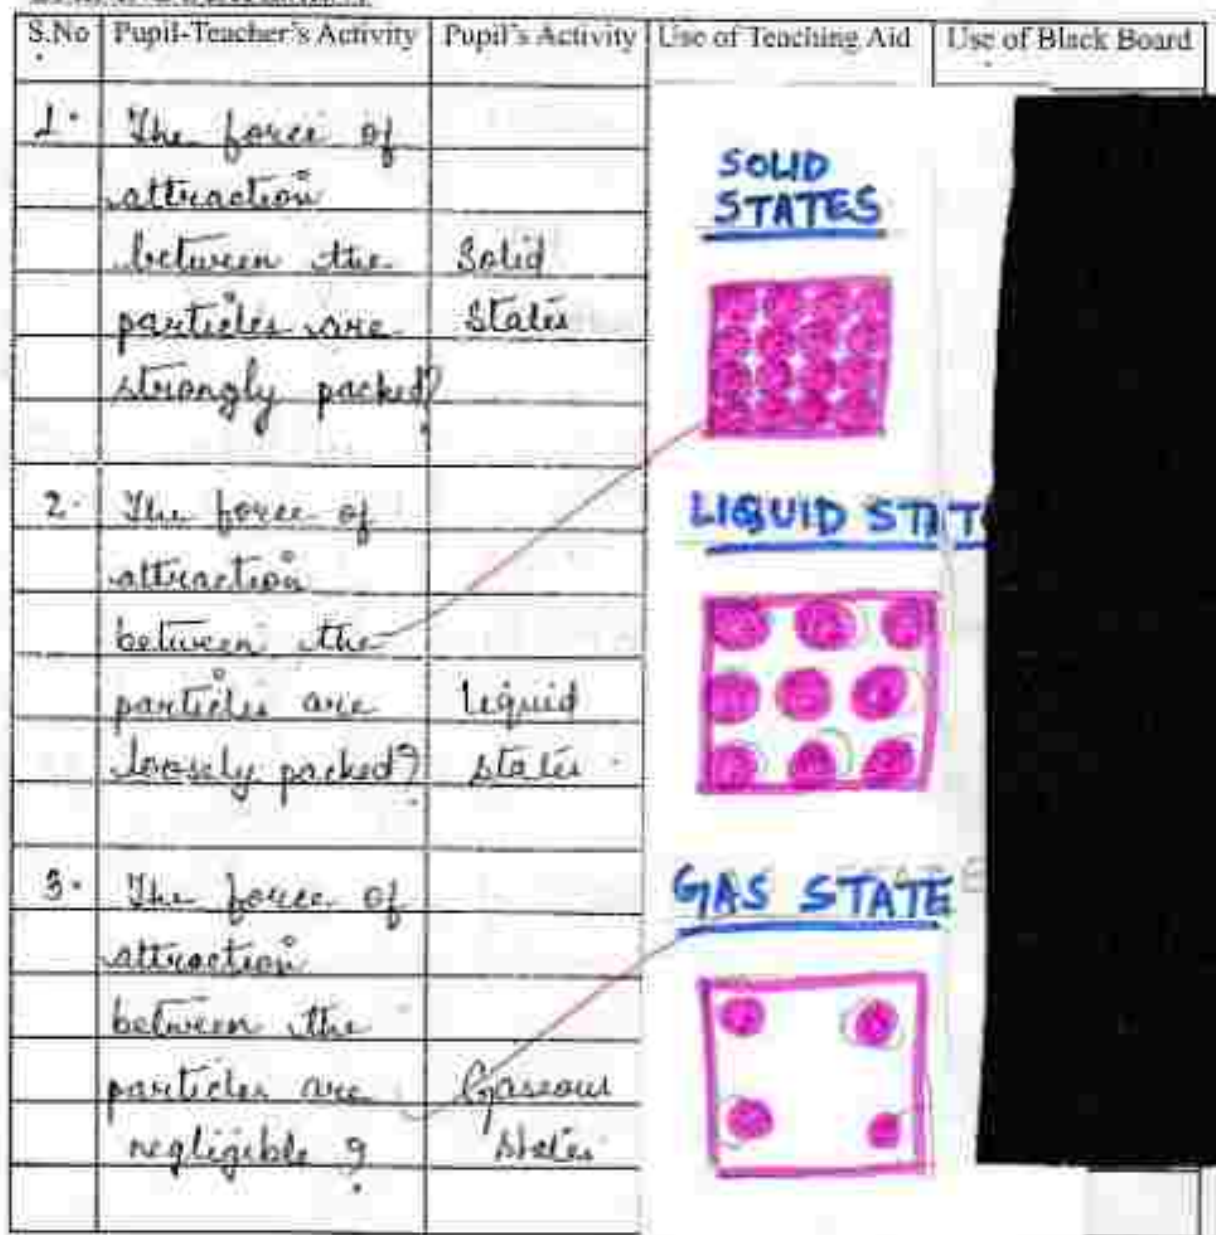 S.No Pupil-Teacher's Activity Pupil's Activity Use of Teaching Aid Use of Black Board
1. The force of
attraction
between the
particles are
strongly packed?
Solid
States
SOLID
STATES
2. The force of
attraction
between the
particles are
loosely packed?
Liquid
states
LIQUID STAT
3. The force of
attraction
between the
particles are
negligible ?
Gaseous
states
GAS STATE